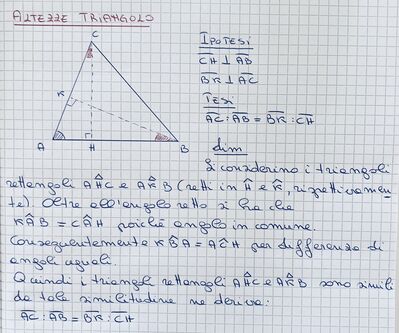 ALTEZZE TRIANGOLO
C
K
A
H
B
IPOTESI
CH ⊥ AB
BK ⊥ AC
TESI
AC : AB = BK : CH
dim
Si considerino i triangoli
rettangoli AĤC e AK̂B (retti in Ĥ e K̂, rispettivamen
te). Oltre all'angolo retto si ha che
KÂB = CÂH poiché angolo in comune.
Conseguentemente KB̂A = AĈH per differenza di
angoli uguali.
Quindi i triangoli rettangoli AĤC e AK̂B sono simili
da tale similitudine ne deriva:
AC : AB = BK : CH